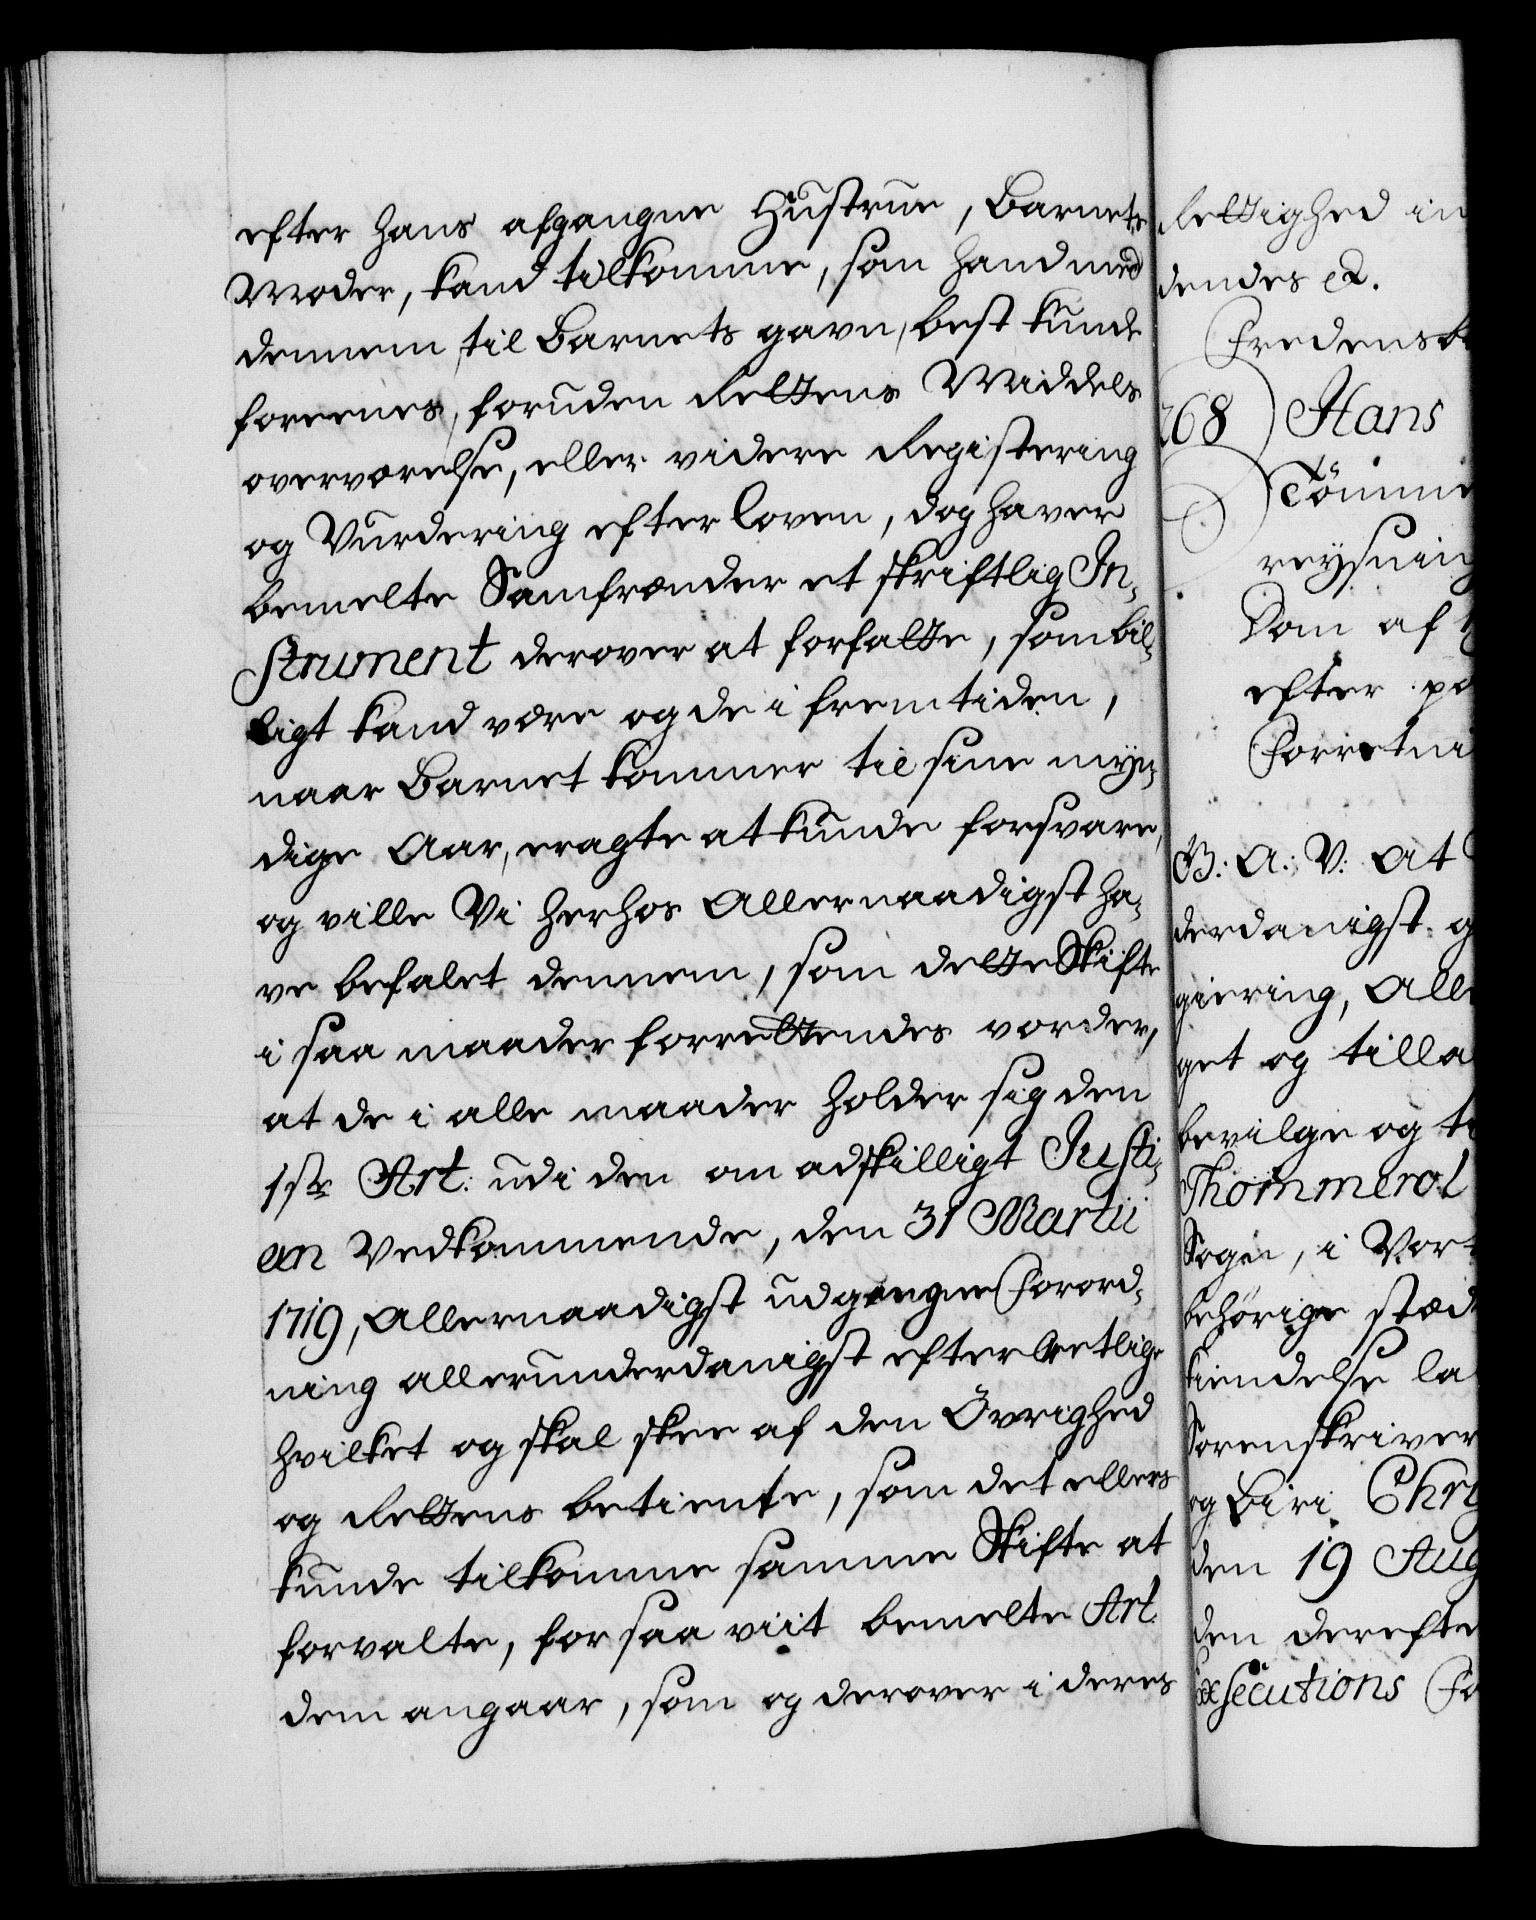 efter hans afgangne Hustrue, Barnets
Moder, kand tilkomme, som hand med
dennem til Barnets gavn, best kunde
foreenes, foruden Rettens Middels
overværelse, eller videre Registering
og Vurdering efter Loven, dog haver
bemelte Samfrænder et skriftlig In-
strument derover at forfatte, som bil-
ligt kand være og de i fremtiden,
naar Barnet kommer til sine myn-
dige Aar, eragte at kunde forsvare,
og ville Vi herhos Allernaadigst ha-
ve befalet dennem, som dette Skifte
i saa maader forrettendes vorder,
at de i alle maader holder sig den
1ste Art: udi den om adskilligt Justi-
en Vedkommende, den 31 Martii
1719, Allernaadigst udgangne Forord-
ning allerunderdanigst efterrettlige
hvilket og skal skee af den Övrighed
og Rettens betiente, som det ellers
kunde tilkomme samme Skifte at
forvalte, for saa viit bemelte Art.
dem angaar, som og derover i deres
Rettighed in
dendes etc.
Fredensb
268 Hans
Tömme
reysning
Dom af
efter pa
Forretni
G: A: V: At
derdanigst g
giering, Alle
get og tilla
bevilge og ti
Thommerol
Sogn, i Vort
behörige stæd
kiendelse la
Sorenskriver
og Biri Chri
den 19 Aug
den derefte
Executions Fo